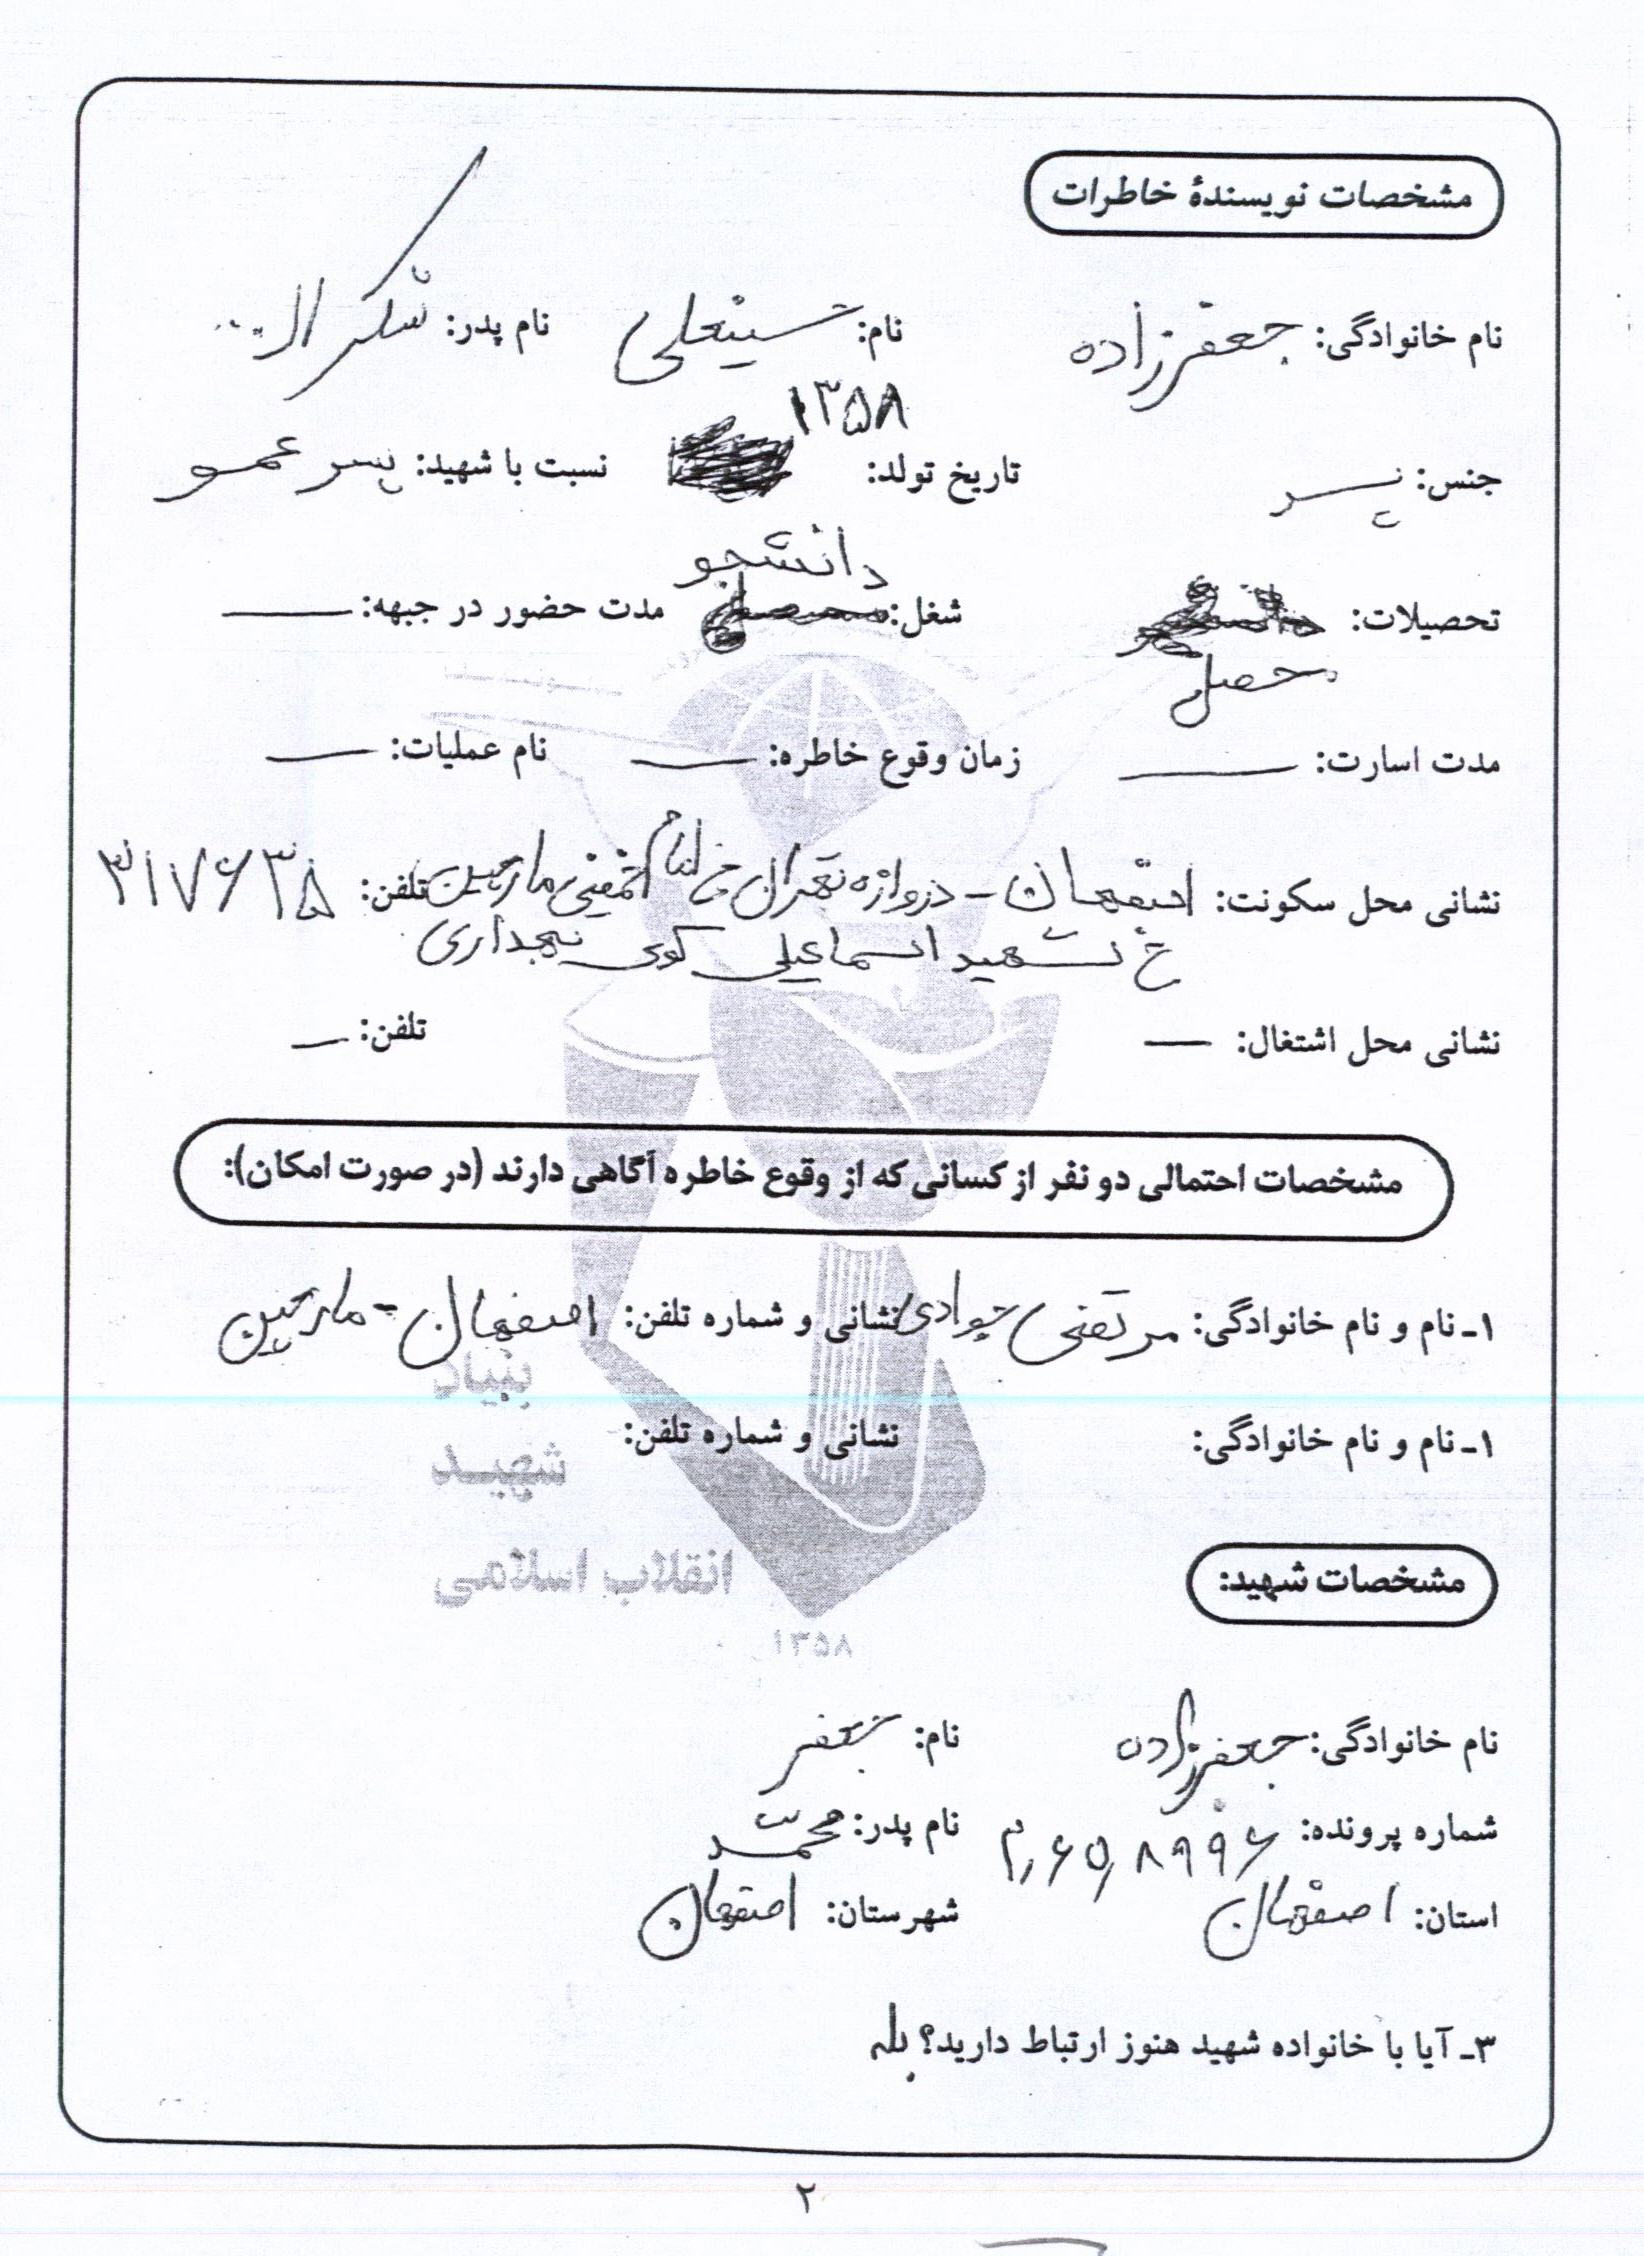 مشخصات نویسندهٔ خاطرات
نام خانوادگی: جعفرزاده نام: حسینعلی نام پدر: شکرالـ...
۱۳۵۸
جنس: پسر تاریخ تولد: نسبت با شهید: پسر عمو
دانشجو
تحصیلات: شغل: مدت حضور در جبهه: —
محصل
مدت اسارت: — زمان وقوع خاطره: — نام عملیات: —
نشانی محل سکونت: اصفهان - دروازه تهران خ امام خمینی مارچین تلفن: ۳۱۷۶۳۵
خ شهید اسماعیلی کوی
نشانی محل اشتغال: — تلفن: —
مشخصات احتمالی دو نفر از کسانی که از وقوع خاطره آگاهی دارند (در صورت امکان):
۱ـ نام و نام خانوادگی: مرتضی جوادی نشانی و شماره تلفن: اصفهان - مارچین
۱ـ نام و نام خانوادگی: نشانی و شماره تلفن:
بنیاد
شهید
انقلاب اسلامی
۱۳۵۸
مشخصات شهید:
نام خانوادگی: جعفرزاده نام: جعفر
شماره پرونده: نام پدر: محمد
استان: اصفهان شهرستان: اصفهان
۳ـ آیا با خانواده شهید هنوز ارتباط دارید؟ بله
۲